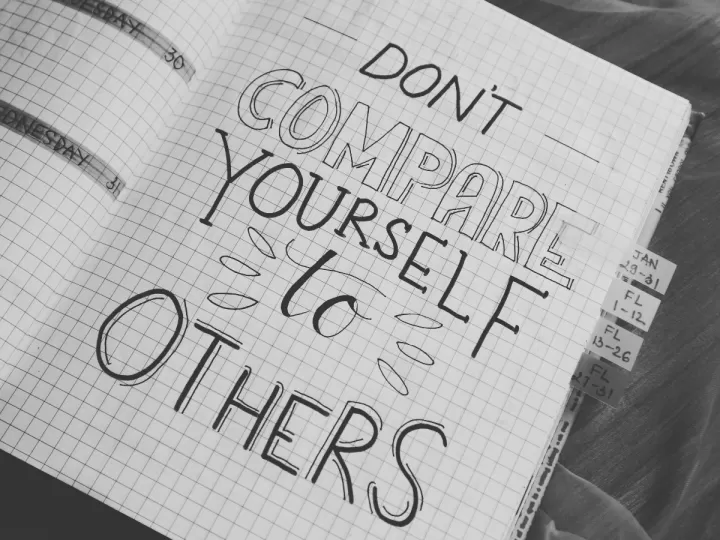 ESDAY 30
DNESDAY 31
DON'T
COMPARE
YOURSELF
to
OTHERS
JAN
29-31
FL
1-12
FL
13-26
FL
27-31